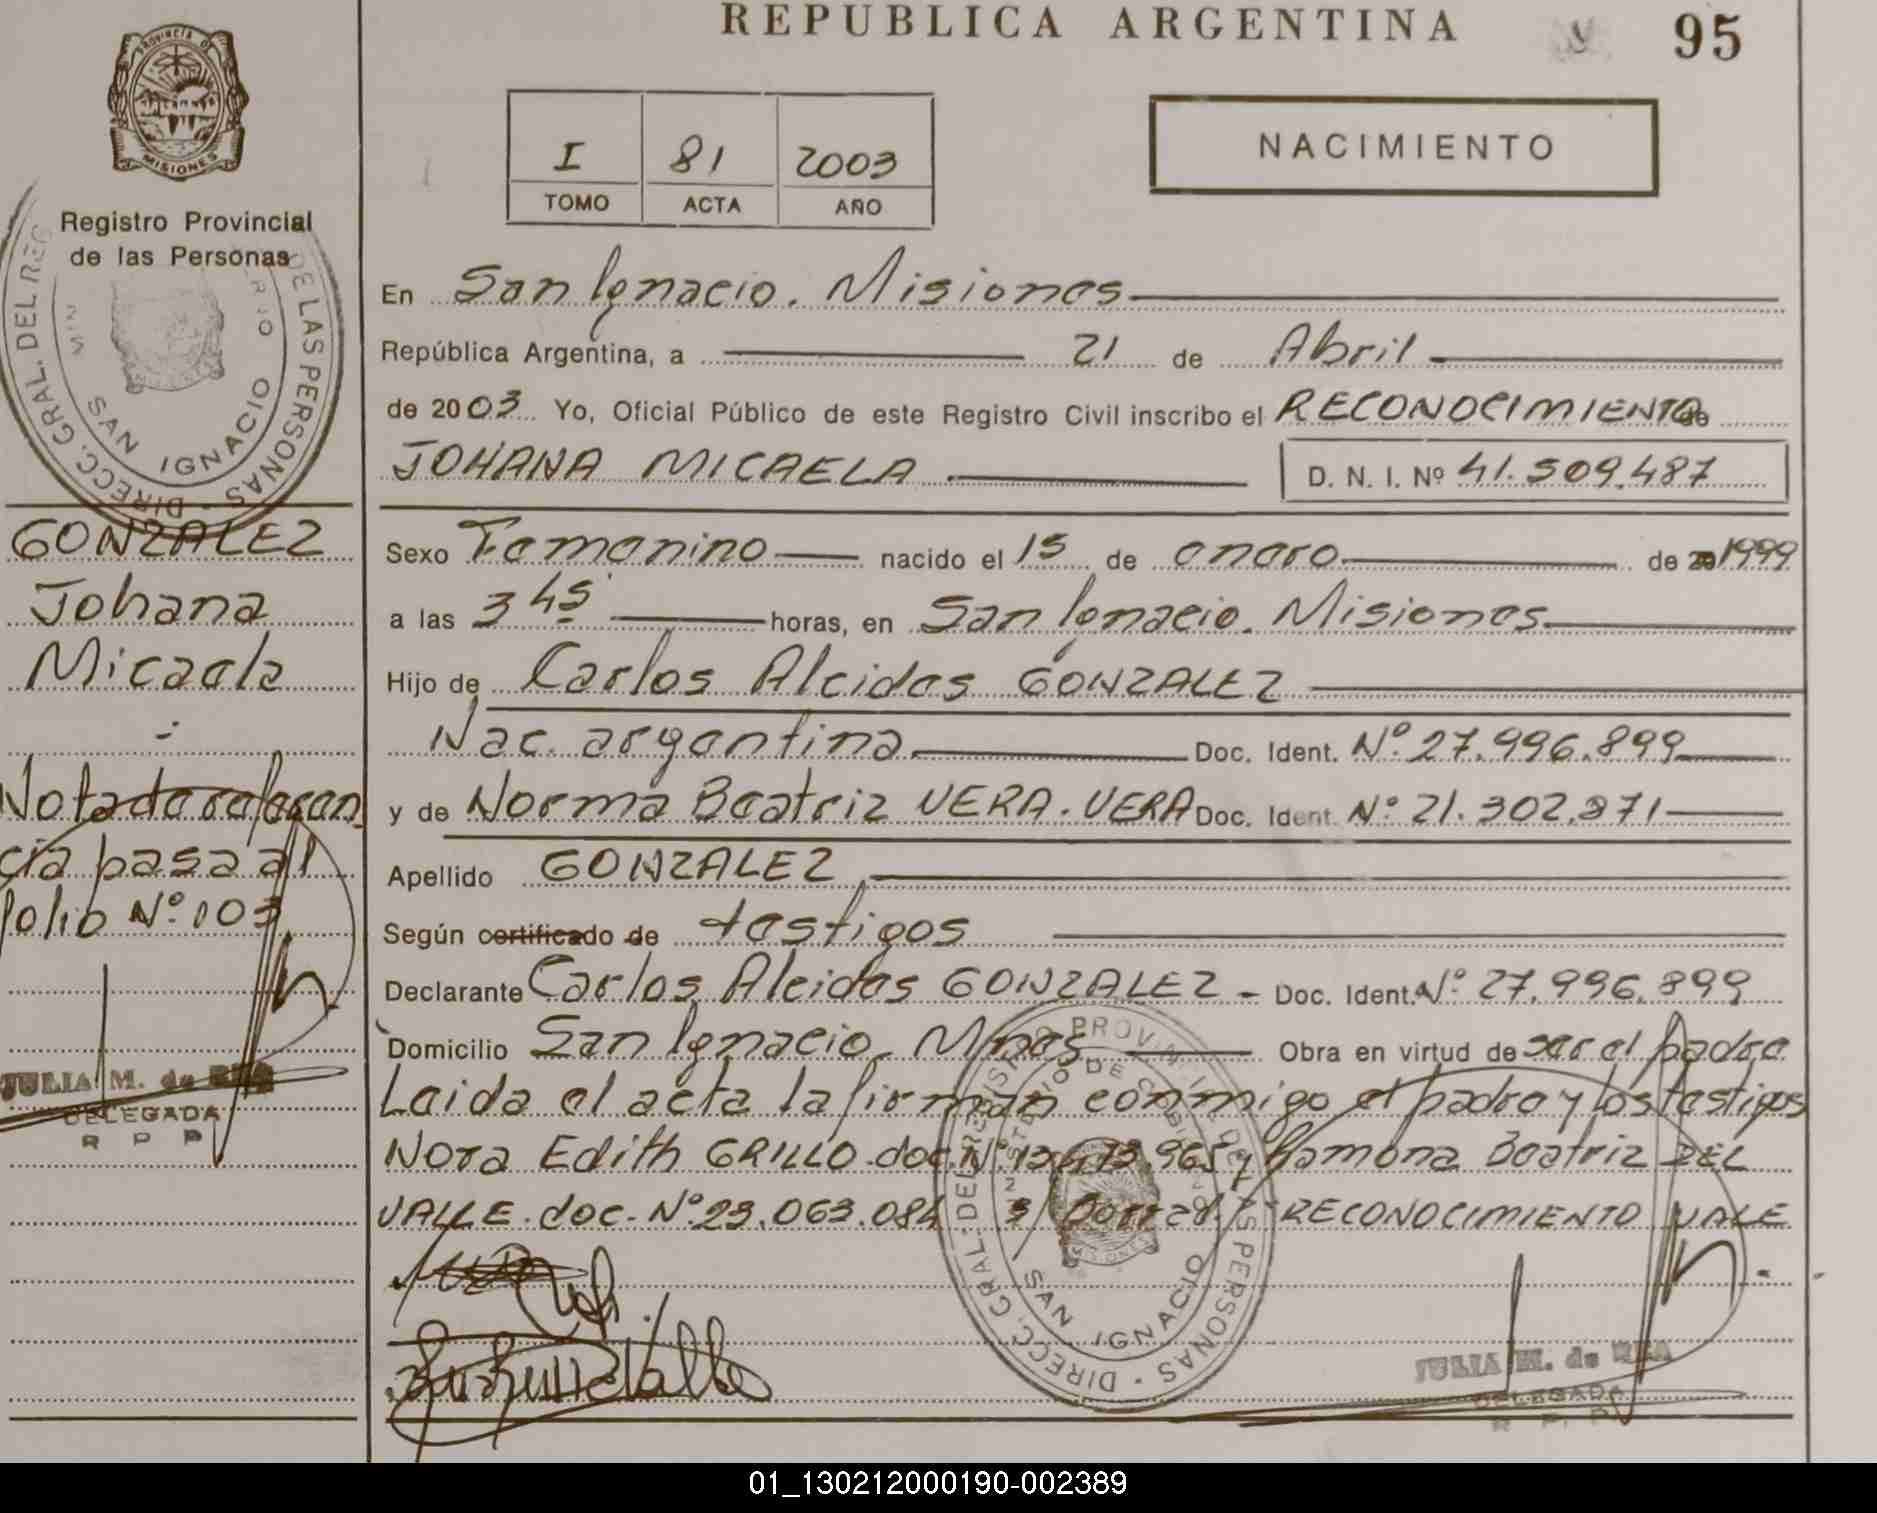 REPUBLICA ARGENTINA
95
PROVINCIA DE
MISIONES
Registro Provincial
de las Personas
DIRECC. GRAL. DEL REG DE LAS PERSONAS
SAN IGNACIO
I 81 2003
TOMO ACTA AÑO
NACIMIENTO
En San Ignacio. Misiones
República Argentina, a 21 de Abril
de 2003 Yo, Oficial Público de este Registro Civil inscribo el RECONOCIMIENTO de
JOHANA MICAELA
D. N. I. Nº 41.509.487
GONZALEZ
Johana
Micaela
Nota de referen
cia pasa al
folio Nº 103
JULIA M. de REA
DELEGADA
R P P
Sexo Femenino nacido el 15 de enero de 20 1999
a las 3 45 horas, en San Ignacio. Misiones
Hijo de Carlos Alcides GONZALEZ
Nac. argentina Doc. Ident. Nº 27.996.899
y de Norma Beatriz VERA. VERA Doc. Ident. Nº 21.302.371
Apellido GONZALEZ
Según certificado de testigos
Declarante Carlos Alcides GONZALEZ - Doc. Ident. Nº 27.996.899
Domicilio San Ignacio Mnes Obra en virtud de ser el padre
Leida el acta la firman conmigo el padre y los testigos
Nora Edith GRILLO doc. Nº y Ramona Beatriz DEL
VALLE. doc. Nº 23.063.084 RECONOCIMIENTO VALE
DIRECC. GRAL. DEL REGISTRO PROVINCIAL DE LAS PERSONAS
MINISTERIO DE GOBIERNO
SAN IGNACIO
MISIONES
JULIA M. de REA
DELEGADA
R. P. P.
01_130212000190-002389